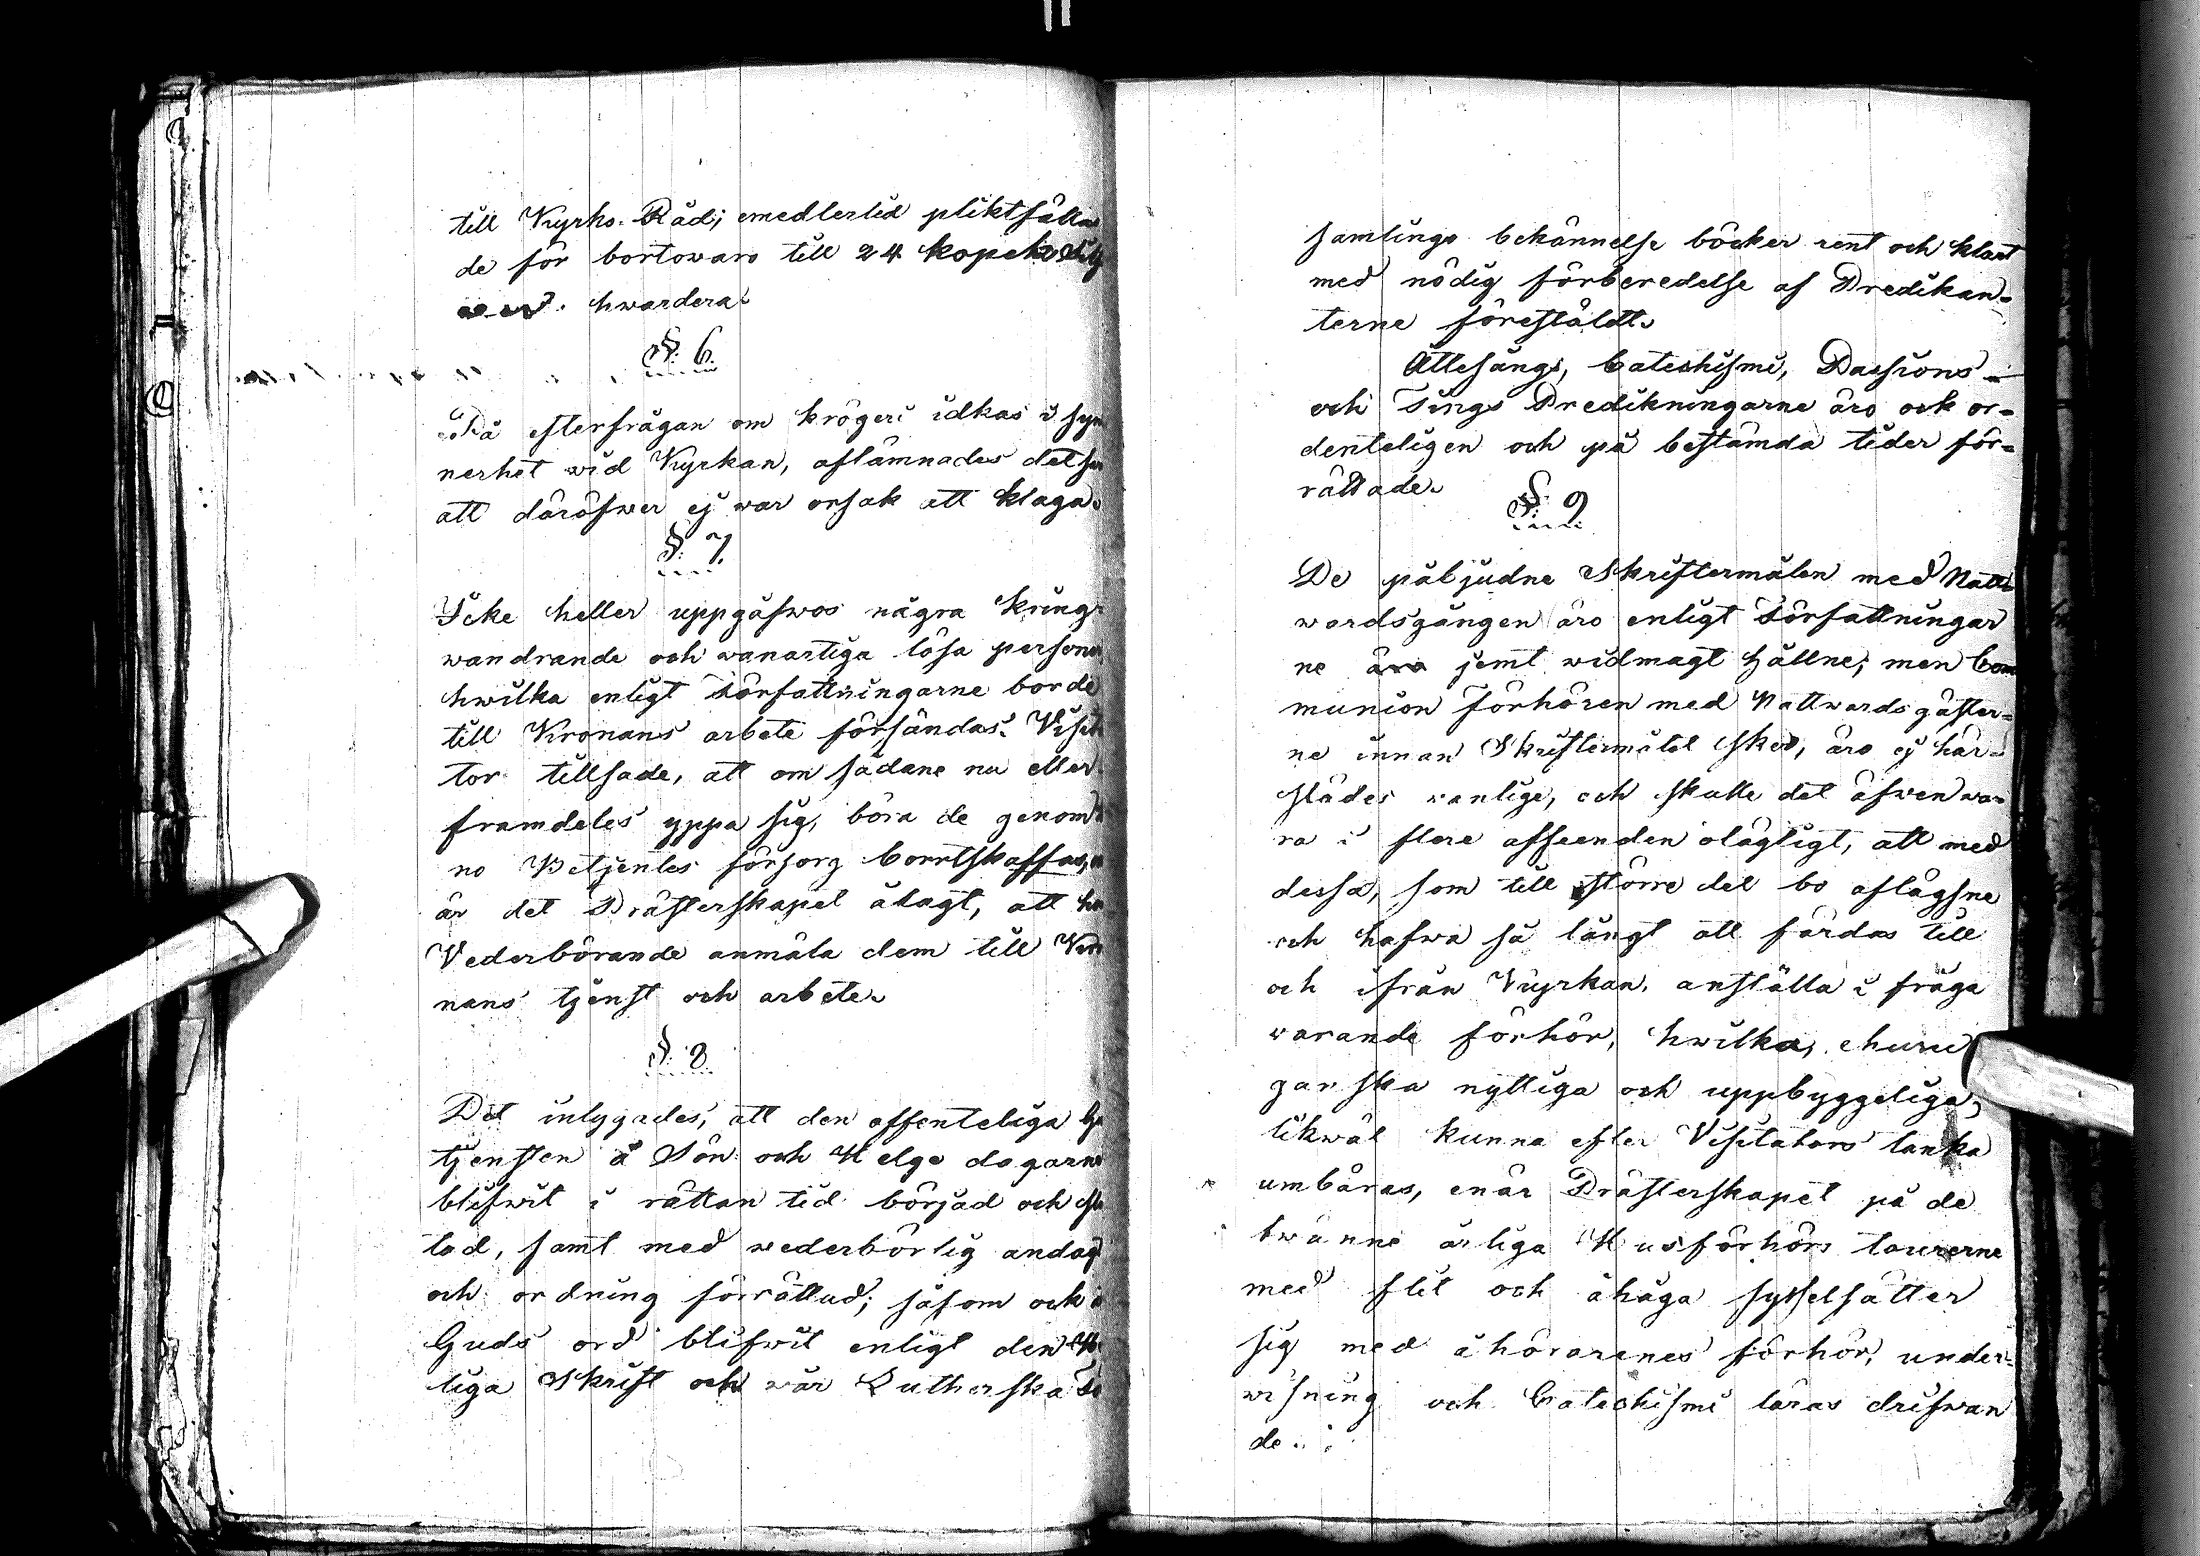 till Kyrko-Råd; emedlertid pliktfälla
de för bortowaro till 24 kopek
hwardera.
§. 6.
På efterfrågan om krögeri idkas i syn
nerhet wid Kyrkan, aflämnades det
att däröfwer ej war orsak att klaga.
§. 7.
Icke heller uppgåfwos några kring-
wandrande och wanartiga lösa person
hwilka enligt Författningarne borde
till Kronans arbete försändas. Visit
tor tillsade, att om sådane nu eller
framdeles yppa sig, böra de genom
no Betjentes försorg borrtskaffas,
är det Prästerskapet ålagt, att ho
Vederbörande anmäla dem till Kro
nans tjenst och arbete.
§. 8.
Det intygades, att den offenteliga
tjensten å Sön och Helge dagarne
blifwit i rättan tid börjad och
tad, samt med wederbörlig andag
och ordning förrättad; såsom ock
Guds ord blifwit enligt den H
liga Skrift och wår Lutherska
samlings bekännelse böcker rent och klart
med nödig förberedelse af Predikan-
terne förestäldt.
Ottesångs, Catechismi, Passions-
och Tings Predikningarne äro ock or-
denteligen och på bestämda tider för-
rättade.
§. 9
De påbjudne Skriftermålen med Natt
wardsgången äro enligt Författningar
ne äro jemt widmagt hållne; men Com
munion Förhören med Nattwards gäster-
ne innan Skriftermålet sker, äro ej här-
städes wanlige, och skulle det äfwen wa-
ra i flere afseenden olägligt, att med
dessa, som till större del bo aflägsne
och hafwa så långt att färdas till
och ifrån Kyrkan, anställa i fråga
warande förhör, hwilka, ehuru
ganska nyttiga och uppbyggeliga,
likwäl kunna efter Visitators tanka
umbäras, enär Prästerskapet på de
twänne årliga Husförhörs tourerne
med flit och åhåga sysselsätter
sig med åhörarenes förhör, under-
wisning och Catechismi läras drifwan
de.